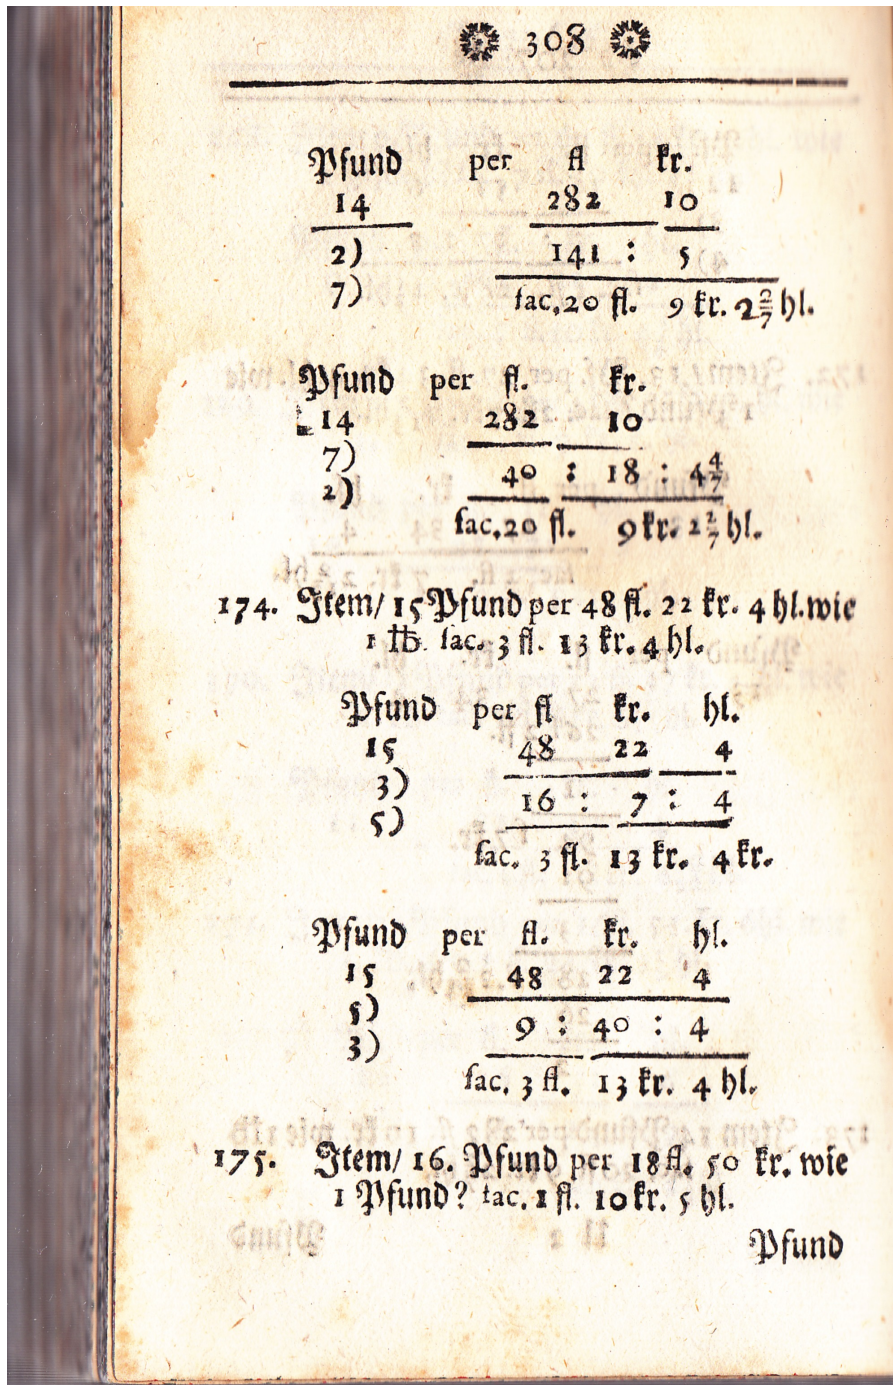 308
Pfund per fl kr.
14 282 10
2) 141 : 5
7) fac. 20 fl. 9 kr. 2 2/7 hl.
Pfund per fl. kr.
14 282 10
7) 40 : 18 : 4 4/7
2)
fac. 20 fl. 9 kr. 2 2/7 hl.
174. Item/ 15 Pfund per 48 fl. 22 kr. 4 hl. wie
1 ℔. fac. 3 fl. 13 kr. 4 hl.
Pfund per fl kr. hl.
15 48 22 4
3) 16 : 7 : 4
5)
fac. 3 fl. 13 kr. 4 kr.
Pfund per fl. kr. hl.
15 48 22 4
5) 9 : 40 : 4
3)
fac. 3 fl. 13 kr. 4 hl.
175. Item/ 16. Pfund per 18 fl. 50 kr. wie
1 Pfund? fac. 1 fl. 10 kr. 5 hl.
Pfund